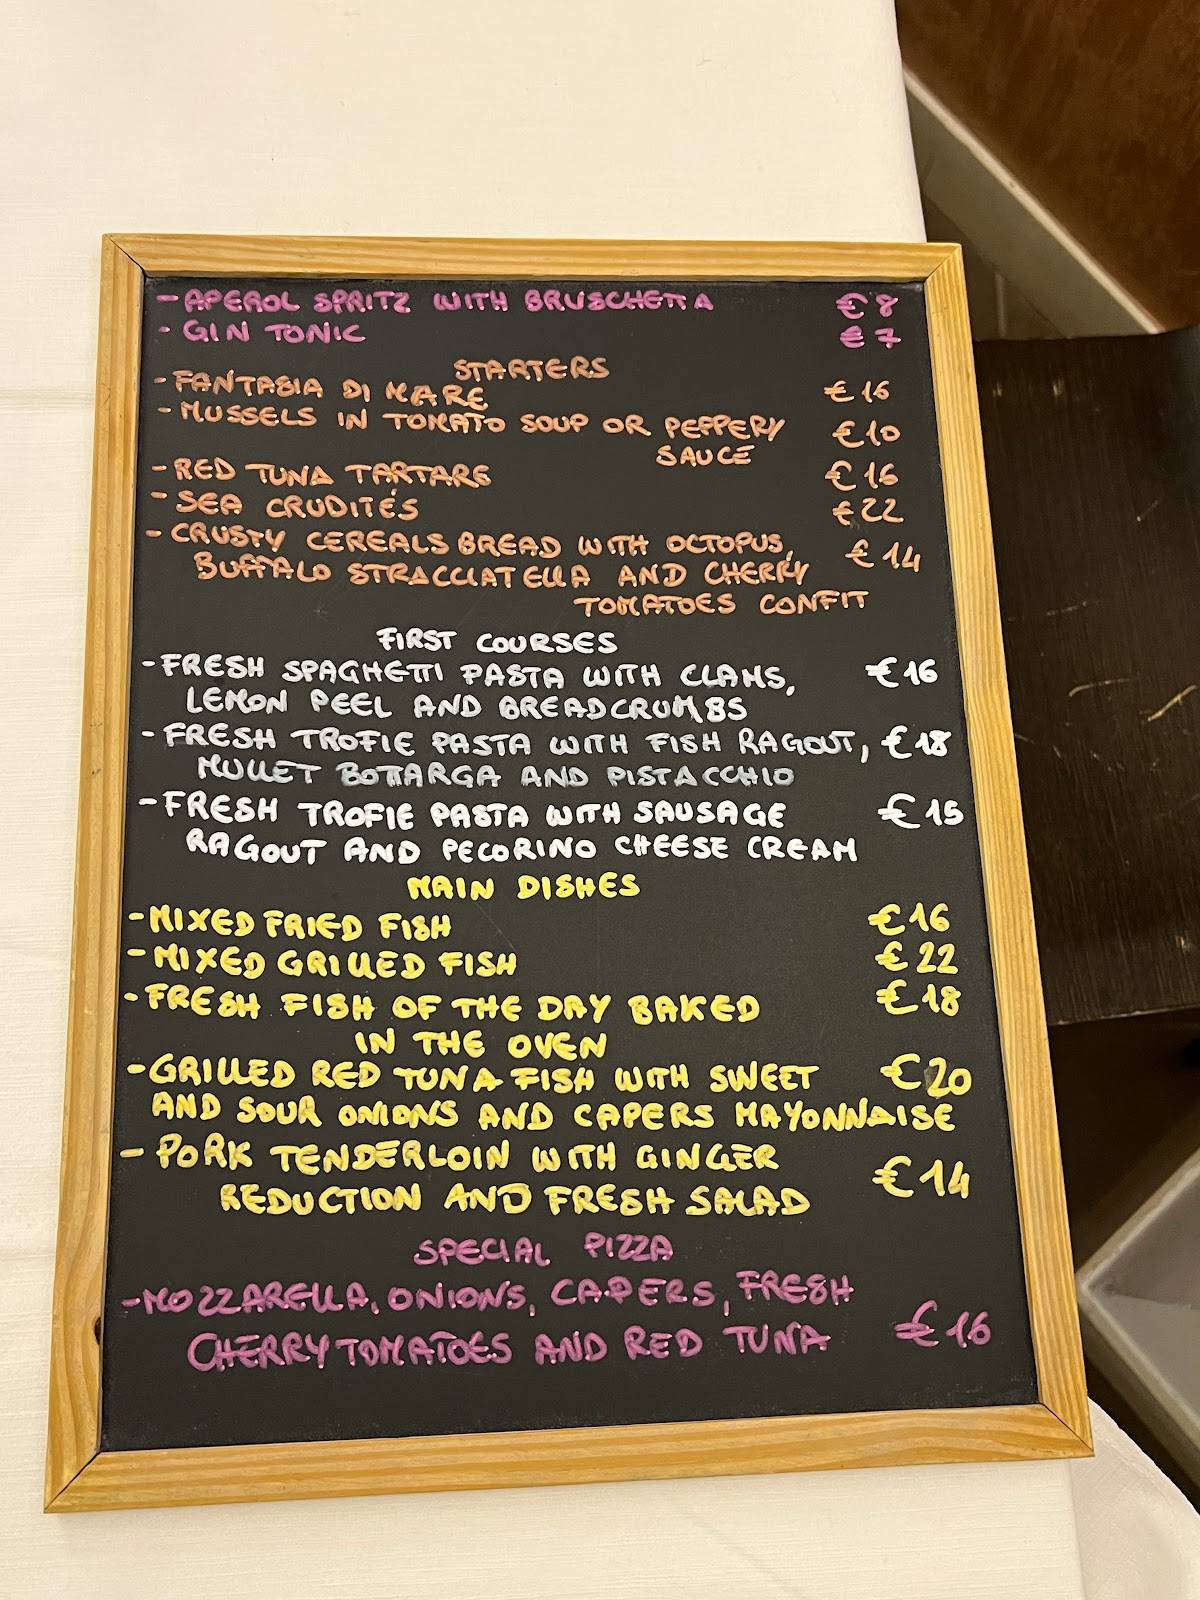 - APEROL SPRITZ WITH BRUSCHETTA €8
- GIN TONIC €7
STARTERS
- FANTASIA DI MARE €16
- MUSSELS IN TOMATO SOUP OR PEPPERY €10
SAUCE
- RED TUNA TARTARE €16
- SEA CRUDITÉS €22
- CRUSTY CEREALS BREAD WITH OCTOPUS, €14
BUFFALO STRACCIATELLA AND CHERRY
TOMATOES CONFIT
FIRST COURSES
- FRESH SPAGHETTI PASTA WITH CLAMS, €16
LEMON PEEL AND BREADCRUMBS
- FRESH TROFIE PASTA WITH FISH RAGOUT, €18
MULLET BOTTARGA AND PISTACCHIO
- FRESH TROFIE PASTA WITH SAUSAGE €15
RAGOUT AND PECORINO CHEESE CREAM
MAIN DISHES
- MIXED FRIED FISH €16
- MIXED GRILLED FISH €22
- FRESH FISH OF THE DAY BAKED €18
IN THE OVEN
- GRILLED RED TUNA FISH WITH SWEET €20
AND SOUR ONIONS AND CAPERS MAYONNAISE
- PORK TENDERLOIN WITH GINGER €14
REDUCTION AND FRESH SALAD
SPECIAL PIZZA
- MOZZARELLA, ONIONS, CAPERS, FRESH
CHERRY TOMATOES AND RED TUNA €16